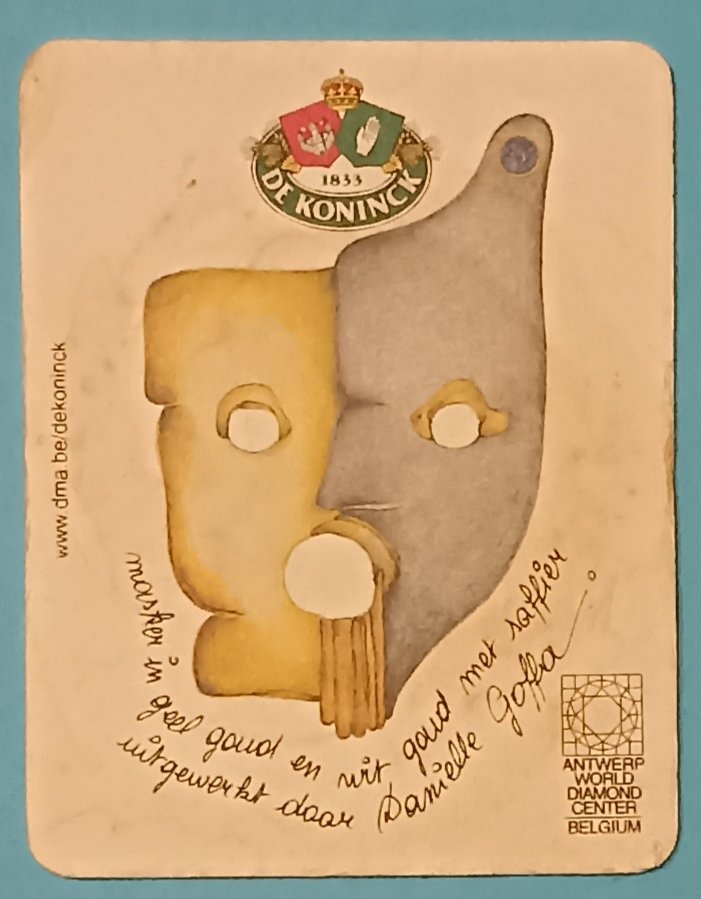 1833
DE KONINCK
www.dma.be/dekoninck
masker in geel goud en wit goud met saffier
uitgewerkt door Danielle Goffa
ANTWERP
WORLD
DIAMOND
CENTER
BELGIUM